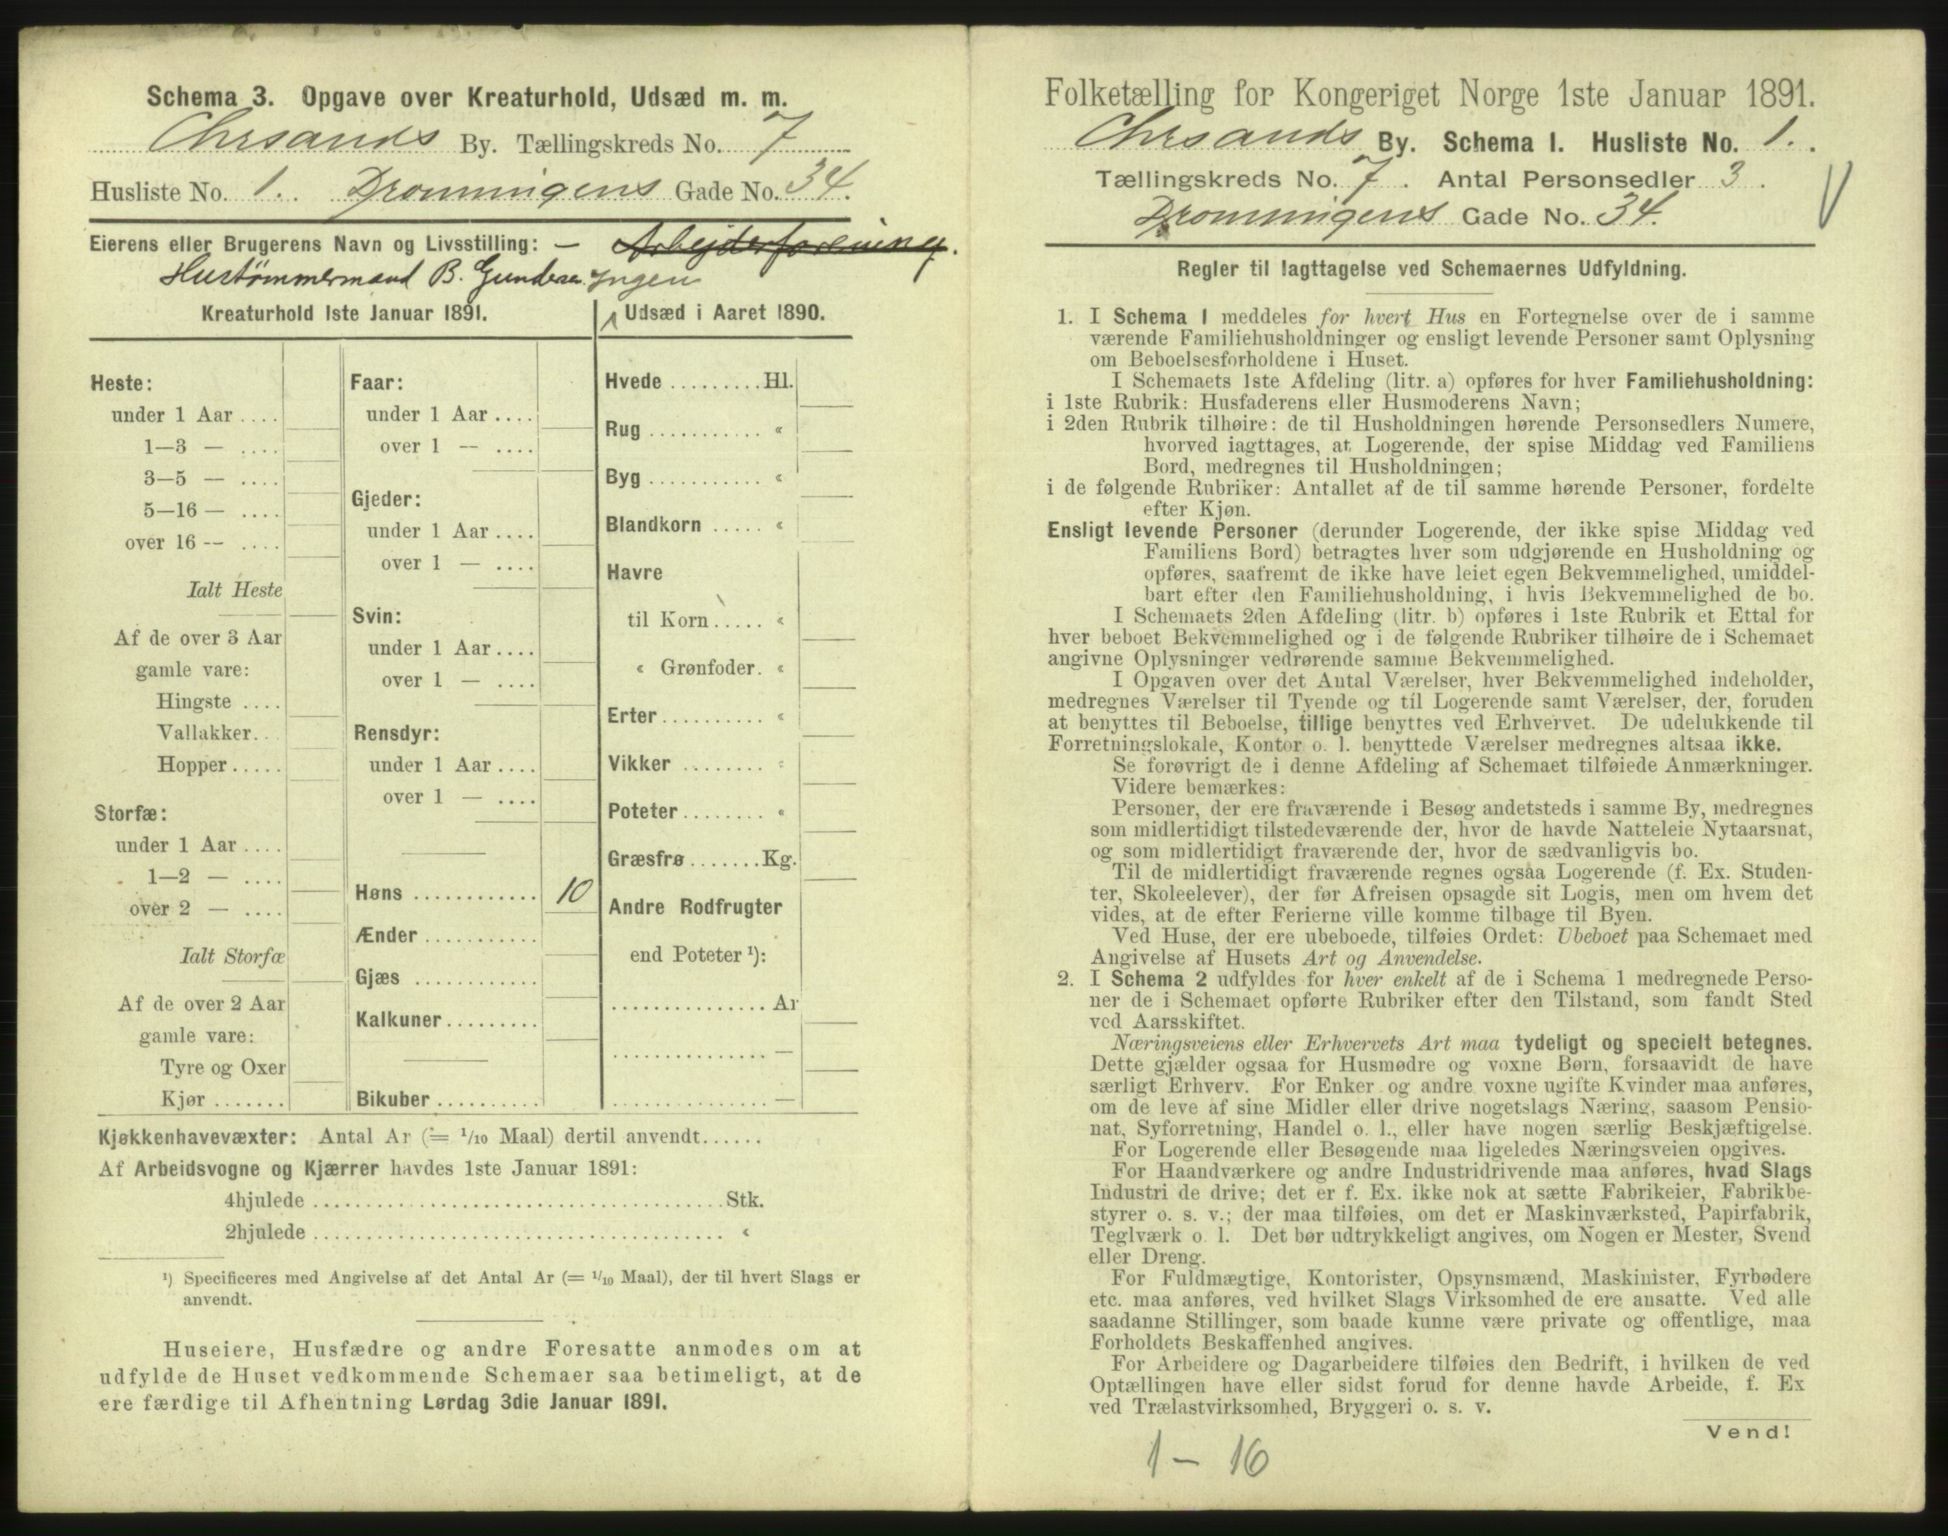 Schema 3. Opgave over Kreaturhold, Udsæd m. m.
Chrsands By. Tællingskreds No. 7
Husliste No. 1. Dronningens Gade No. 34.
Eierens eller Brugerens Navn og Livsstilling: – Arbejderforening.
Hustømmermand B. Gundersen Ingen
Kreaturhold 1ste Januar 1891.
Heste:
under 1 Aar ....
1—3 — ....
3—5 — ....
5—16 — ....
over 16 — ....
Ialt Heste
Af de over 3 Aar
gamle vare:
Hingste ....
Vallakker..
Hopper .....
Storfæ:
under 1 Aar ....
1—2 — ....
over 2 — ....
Ialt Storfæ
Af de over 2 Aar
gamle vare:
Tyre og Oxer
Kjør .......
Faar:
under 1 Aar ....
over 1 — ....
Gjeder:
under 1 Aar ....
over 1 — ....
Svin:
under 1 Aar ....
over 1 — ....
Rensdyr:
under 1 Aar ....
over 1 — ....
Høns ............ 10
Ænder ...........
Gjæs ............
Kalkuner .........
Bikuber ..........
Udsæd i Aaret 1890.
Hvede ......... Hl.
Rug ........... «
Byg ........... «
Blandkorn ..... «
Havre
til Korn ..... «
« Grønfoder. «
Erter .......... «
Vikker ........ «
Poteter ........ «
Græsfrø ....... Kg.
Andre Rodfrugter
end Poteter ¹):
............... Ar
............... —
............... —
Kjøkkenhavevæxter: Antal Ar (= 1/10 Maal) dertil anvendt......
Af Arbeidsvogne og Kjærrer havdes 1ste Januar 1891:
4hjulede ........................................ Stk.
2hjulede ........................................ «
¹) Specificeres med Angivelse af det Antal Ar (= 1/10 Maal), der til hvert Slags er
anvendt.
Huseiere, Husfædre og andre Foresatte anmodes om at
udfylde de Huset vedkommende Schemaer saa betimeligt, at de
ere færdige til Afhentning Lørdag 3die Januar 1891.
Folketælling for Kongeriget Norge 1ste Januar 1891.
Chrsands By. Schema I. Husliste No. 1.
Tællingskreds No. 7. Antal Personsedler 3.
Dronningens Gade No. 34.
Regler til Iagttagelse ved Schemaernes Udfyldning.
1. I Schema 1 meddeles for hvert Hus en Fortegnelse over de i samme
værende Familiehusholdninger og ensligt levende Personer samt Oplysning
om Beboelsesforholdene i Huset.
I Schemaets 1ste Afdeling (litr. a) opføres for hver Familiehusholdning:
i 1ste Rubrik: Husfaderens eller Husmoderens Navn;
i 2den Rubrik tilhøire: de til Husholdningen hørende Personsedlers Numere,
hvorved iagttages, at Logerende, der spise Middag ved Familiens
Bord, medregnes til Husholdningen;
i de følgende Rubriker: Antallet af de til samme hørende Personer, fordelte
efter Kjøn.
Ensligt levende Personer (derunder Logerende, der ikke spise Middag ved
Familiens Bord) betragtes hver som udgjørende en Husholdning og
opføres, saafremt de ikke have leiet egen Bekvemmelighed, umiddel-
bart efter den Familiehusholdning, i hvis Bekvemmelighed de bo.
I Schemaets 2den Afdeling (litr. b) opføres i 1ste Rubrik et Ettal for
hver beboet Bekvemmelighed og i de følgende Rubriker tilhøire de i Schemaet
angivne Oplysninger vedrørende samme Bekvemmelighed.
I Opgaven over det Antal Værelser, hver Bekvemmelighed indeholder,
medregnes Værelser til Tyende og til Logerende samt Værelser, der, foruden
at benyttes til Beboelse, tillige benyttes ved Erhvervet. De udelukkende til
Forretningslokale, Kontor o. l. benyttede Værelser medregnes altsaa ikke.
Se forøvrigt de i denne Afdeling af Schemaet tilføiede Anmærkninger.
Videre bemærkes:
Personer, der ere fraværende i Besøg andetsteds i samme By, medregnes
som midlertidigt tilstedeværende der, hvor de havde Natteleie Nytaarsnat,
og som midlertidigt fraværende der, hvor de sædvanligvis bo.
Til de midlertidigt fraværende regnes ogsaa Logerende (f. Ex. Studen-
ter, Skoleelever), der før Afreisen opsagde sit Logis, men om hvem det
vides, at de efter Ferierne ville komme tilbage til Byen.
Ved Huse, der ere ubeboede, tilføies Ordet: Ubeboet paa Schemaet med
Angivelse af Husets Art og Anvendelse.
2. I Schema 2 udfyldes for hver enkelt af de i Schema 1 medregnede Perso-
ner de i Schemaet opførte Rubriker efter den Tilstand, som fandt Sted
ved Aarsskiftet.
Næringsveiens eller Erhvervets Art maa tydeligt og specielt betegnes.
Dette gjælder ogsaa for Husmødre og voxne Børn, forsaavidt de have
særligt Erhverv. For Enker og andre voxne ugifte Kvinder maa anføres,
om de leve af sine Midler eller drive nogetslags Næring, saasom Pensio-
nat, Syforretning, Handel o. l., eller have nogen særlig Beskjæftigelse.
For Logerende eller Besøgende maa ligeledes Næringsveien opgives.
For Haandværkere og andre Industridrivende maa anføres, hvad Slags
Industri de drive; det er f. Ex. ikke nok at sætte Fabrikeier, Fabrikbe-
styrer o. s. v.; der maa tilføies, om det er Maskinværksted, Papirfabrik,
Teglværk o. l. Det bør udtrykkeligt angives, om Nogen er Mester, Svend
eller Dreng.
For Fuldmægtige, Kontorister, Opsynsmænd, Maskinister, Fyrbødere
etc. maa anføres, ved hvilket Slags Virksomhed de ere ansatte. Ved alle
saadanne Stillinger, som baade kunne være private og offentlige, maa
Forholdets Beskaffenhed angives.
For Arbeidere og Dagarbeidere tilføies den Bedrift, i hvilken de ved
Optællingen have eller sidst forud for denne havde Arbeide, f. Ex
ved Trælastvirksomhed, Bryggeri o. s. v.
Vend!
1 – 16